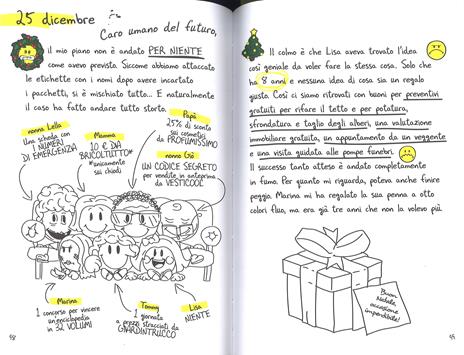 25 dicembre
Caro umano del futuro,
il mio piano non è andato PER NIENTE
come avevo prevista. Siccome abbiamo attaccato
le etichette con i nomi dopo avere incartato
i pacchetti, si è mischiato tutto... E naturalmente
il caso ha fatto andare tutto storto.
nonna Lella
Una scheda con
I NUMERI
DI EMERGENZA
Mamma
10 € DA
BRICOLTUTTO*
*unicamente
sui chiodi
Papà
25% di sconto
sui cosmetici
da PROFUMISSIMO
nonna Giò
UN CODICE SEGRETO
per vendite in anteprima
da VESTICOOL
Marina
1 concorso per vincere
un'enciclopedia
in 32 VOLUMI
Tommy
1 giornata
a prezzi stracciati da
GIARDINTRUCCO
Lisa
NIENTE
98
Il colmo è che Lisa aveva trovato l'idea
così geniale da voler fare la stessa cosa. Solo che
ha 8 anni e nessuna idea di cosa sia un regalo
giusto. Così ci siamo ritrovati con buoni per preventivi
gratuiti per rifare il tetto e per potatura,
sfrondatura e taglio degli alberi, una valutazione
immobiliare gratuita, un appuntamento da un veggente
e una visita guidata alle pompe funebri.
Il successo tanto atteso è andato completamente
in fumo. Per quanto mi riguarda, poteva anche finire
peggio. Marina mi ha regalato la sua penna a otto
colori fluo, ma era già tre anni che non la volevo più.
Buon
Natale,
occasione
imperdibile!
99